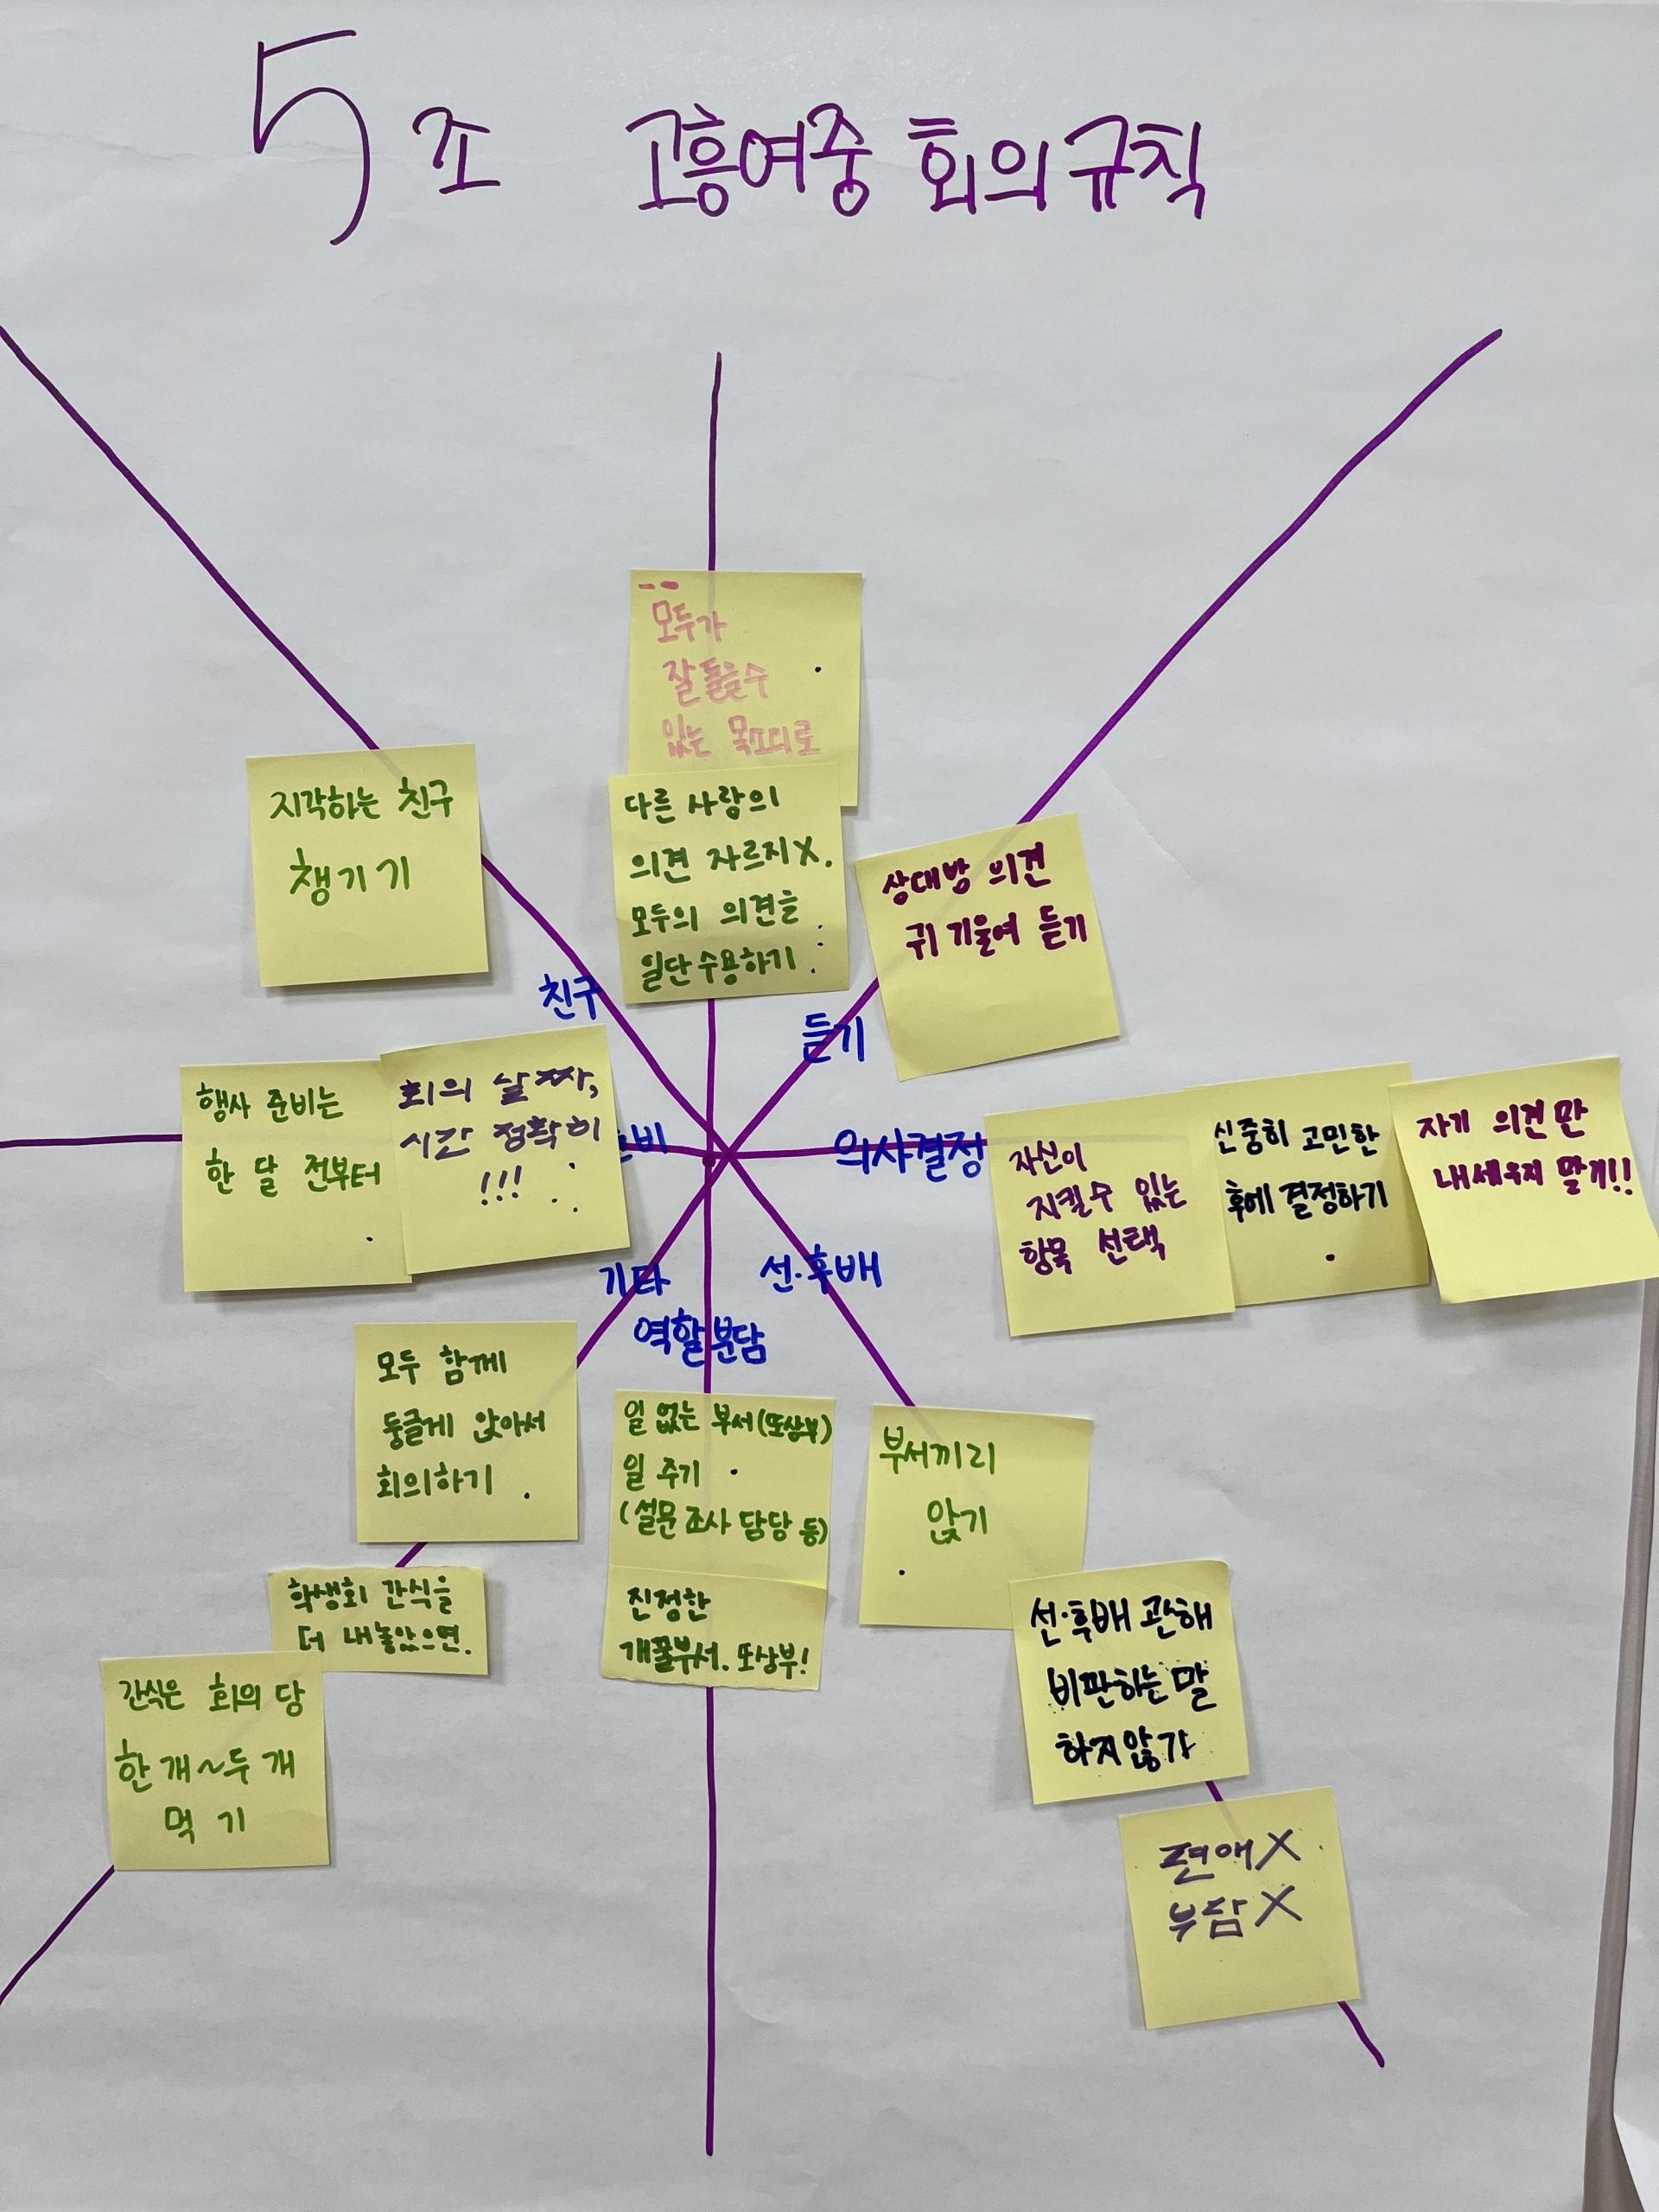 5조 고흥여중 회의규칙
모두가
잘 들을수
있는 목소리로
다른 사람의
의견 자르지X.
모두의 의견을
일단 수용하기
지각하는 친구
챙기기
상대방 의견
귀 기울여 듣기
친구
듣기
행사 준비는
한 달 전부터
회의 날짜,
시간 정확히
!!!
비
의사결정
자신이
지킬수 있는
항목 선택
신중히 고민한
후에 결정하기
자기 의견만
내세우지 말기!!
기타
역할분담
선·후배
모두 함께
둥글게 앉아서
회의하기
학생회 간식을
더 내놓았으면.
간식은 회의 당
한 개~두 개
먹기
일 없는 부서(또상부)
일 주기
(설문조사 담당 등)
진정한
개꿀부서. 또상부!
부서끼리
앉기
선·후배 관해
비판하는 말
하지않기
편애X
부담X